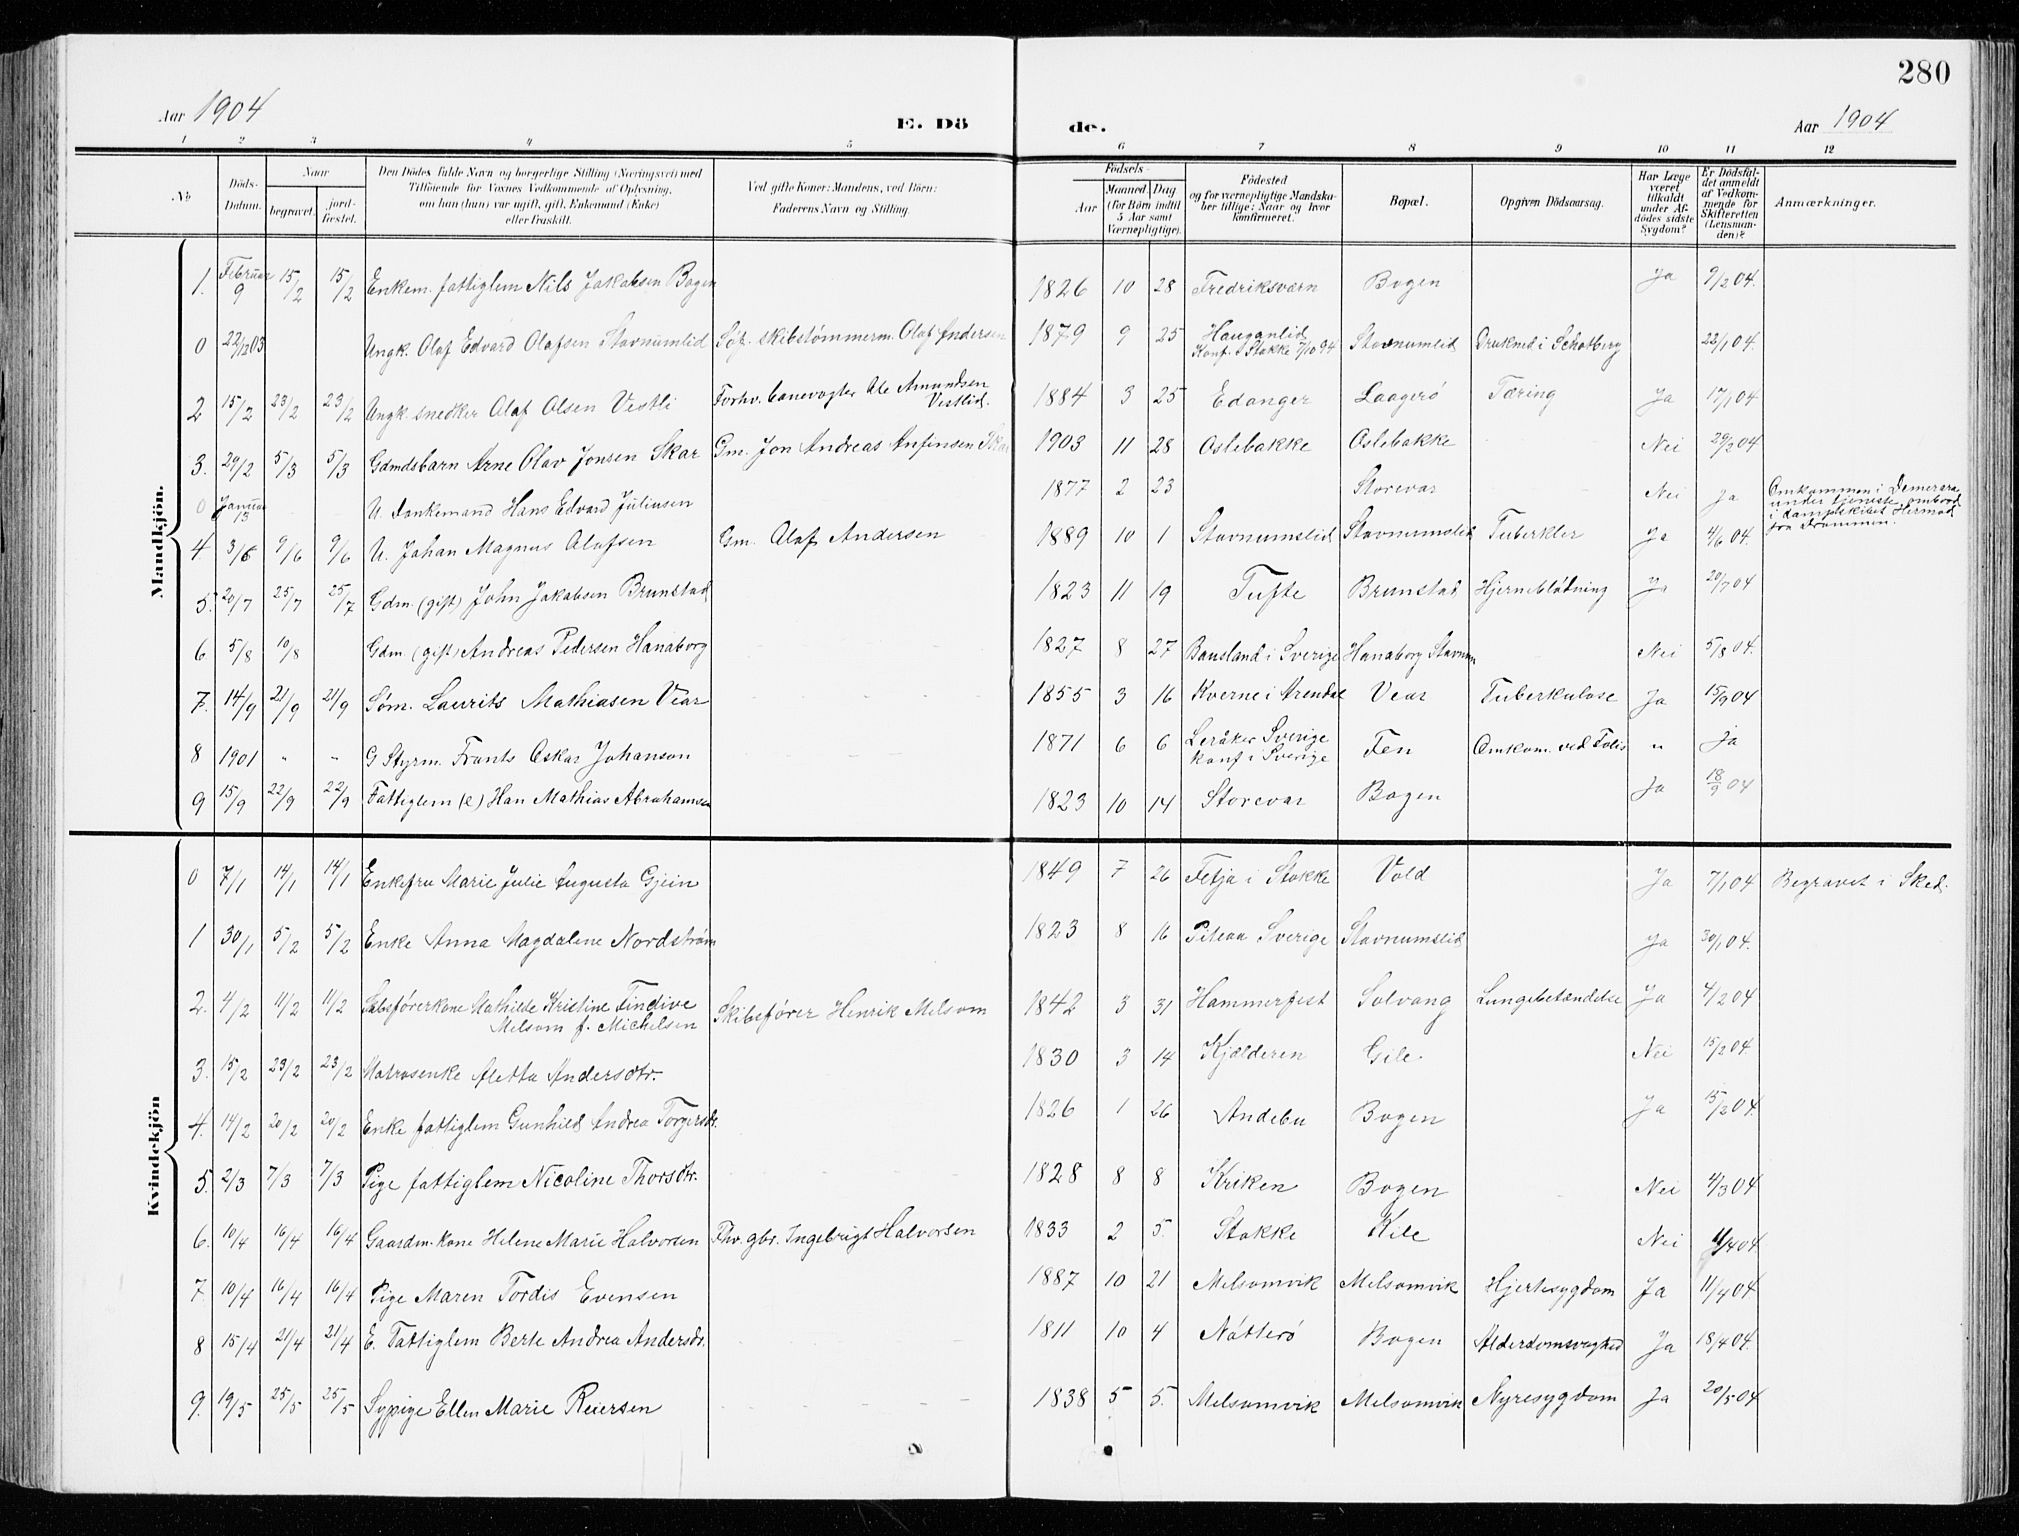 280
Aar 1904
E. Döde.
Aar 1904
1 2 3 4 5 6 7 8 9 10 11 12
No
Döds-Datum.
Naar
begravet.
jordfæstet.
Den Dödes fulde Navn og borgerlige Stilling (Næringsvei) med
Tilföiende for Voxnes Vedkommende af Oplysning,
om han (hun) var ugift, gift, Enkemand (Enke)
eller fraskilt.
Ved gifte Koner: Mandens, ved Börn:
Faderens Navn og Stilling.
Födsels-
Aar
Maaned. Dag.
(for Börn indtil
5 Aar samt
Værnepligtige).
Födested
og for værnepligtige Mandska-
ber tillige: Naar og hvor
konfirmeret.
Bopæl.
Opgiven Dödsaarsag.
Har Læge
været
tilkaldt
under Af-
dödes sidste
Sygdom?
Er Dödsfal-
det anmeldt
af Vedkom-
mende for
Skifteretten
(Lensman-
den)?
Anmærkninger.
Mandkjön.
1. Februar 9 15/2 15/2 Enkem. fattiglem Nils Jakobsen Bogen 1826 10 28 Fredriksværn Bogen Ja 9/2 04.
0 22/12 03 Ungk. Olaf Edvard Olafsen Stavnumlid Søf. skibstømmerm. Olaf Andersen 1879 9 25 Hauganlid Konf. i Stokke 7/10 94 Stavnumlid Druknet i Schotberg 22/1 04.
2 15/2 23/2 23/2 Ungk. snedker Olaf Olsen Vestli Forhv. banevogter Ole Amundsen Vestlid. 1884 3 25 Edanger Laagerö Tæring Ja 17/1 04
3. 29/2 5/3 5/3 Gdmdsbarn Arne Olav Jonsen Skar Gm. Jon Andreas Antonsen Skar 1903 11 28 Oslebakke Oslebakke Nei 29/2 04
0 Januar 13 U. Dankemand Hans Edvard Juliusen 1877 2 23 Storevar Nei Ja Omkommen i Demerara under tjeneste ombord i dampskibet Hermod fra Drammen.
4. 3/6 9/6 9/6 U. Johan Magnus Olafsen Gm. Olaf Andersen 1889 10 1 Stavnumslid Stavnumslid Tuberkler Ja 4/6 04.
5. 20/7 25/7 25/7 Gdm. (gift) John Jakobsen Brunstad 1823 11 19 Tufte Brunstad Hjerneblödning Ja 20/7 04
6 5/8 10/8 Gdm. (gift) Andreas Pedersen Hanaborg 1827 8 27 Bausland i Sverige Hanaborg Stavnum Nei 5/8 04.
7. 14/9 21/9 21/9 Søm. Laurits Mathiasen Vear 1855 3 16 Kverne i Arendal Vear Tuberkulose Ja 15/9 04
8 1901 " " G Styrm. Frants Oskar Johanson 1871 6 6 Leråker Sverige konf i Sverige Fen Omkom. ved Forlis " Ja
9 15/9 22/9 22/9 Fattiglem (e) Han Mathias Abrahamsen 1823 10 14 Storevar Bogen Ja 18/9 04
Kvindekjön
0 7/1 14/1 14/1 Enkefru Marie Julie Augusta Gjein 1849 7 26 Fetja i Stokke Vold Ja 7/1 04 Begravet i Sked.
1 30/1 5/2 5/2 Enke Anna Magdalene Nordström 1823 8 16 Piteaa Sverige Stavnumslid Ja 30/1 04.
2. 4/2 11/2 11/2 Skbsførerkone Mathilde Kristine Findive Melsom f. Michelsen Skibsfører Henrik Melsom 1842 3 31 Hammerfest Solvang Lungebetændelse Ja 4/2 04
3. 15/2 23/2 23/2 Matrosenke Aletta Andersdtr. 1830 3 14 Kjælderen Gile. Nei 15/2 04.
4. 14/2 20/2 20/2 Enke fattiglem Gunhild Andrea Torgersdr. 1826 1 26 Andebu Bogen Ja 15/2 04.
5. 2/3 7/3 7/3 Pige fattiglem Nicoline Thorsdtr. 1828 8 8 Kriken Bogen Nei 4/3 04
6. 10/4 16/4 16/4 Gaardm. kone Helene Marie Halvorsen Fhv. gbr. Ingebrigt Halvorsen 1833 2 5. Stokke Kile Nei 11/4 04
7. 10/4 16/4 16/4 Pige Maren Tordis Evensen 1887 10 21 Melsomvik Melsomvik Hjertesygdom Ja 11/4 04.
8 15/4 21/4 21/4 E. Fattiglem Berte Andrea Andersdr. 1811 10 4 Nötterö Bogen Alderdomsvaghed Ja 18/4 04.
9. 19/5 25/5 25/5 Sypige Ellen Marie Reiersen 1838 5 5. Melsomvik Melsomvik Nyresygdom Ja 20/5 04